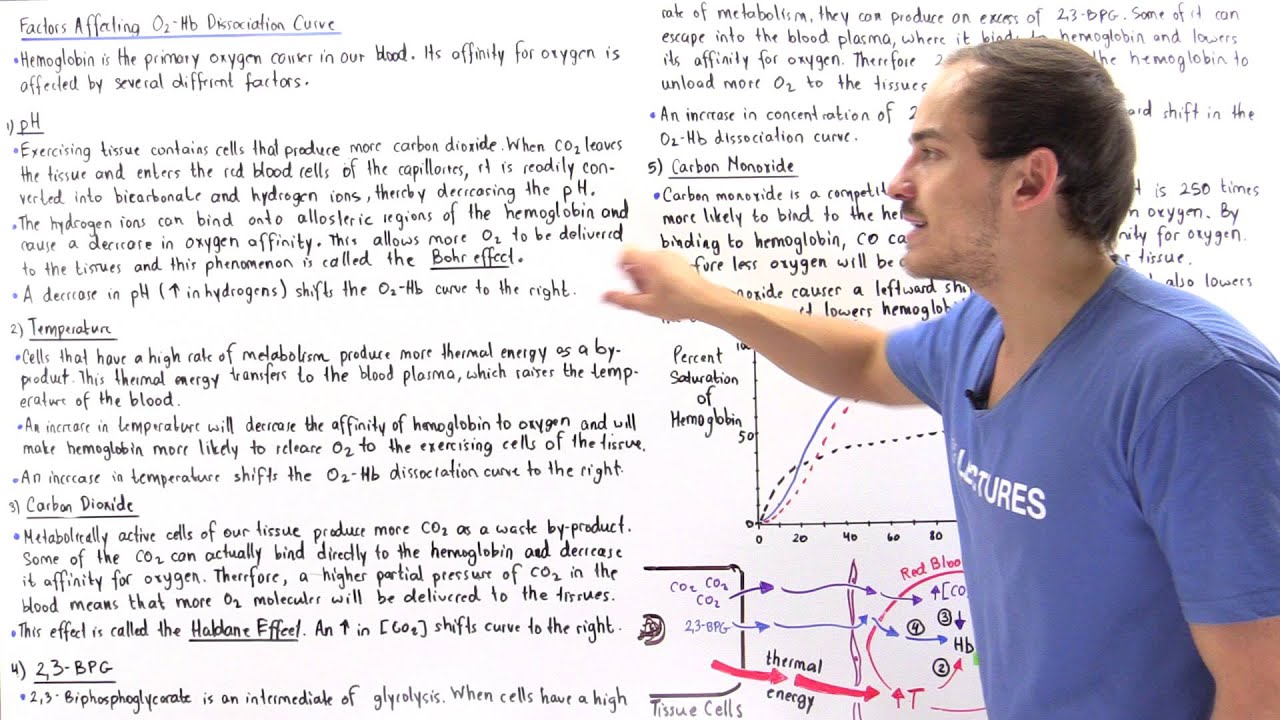 Factors Affecting O2-Hb Dissociation Curve
•Hemoglobin is the primary oxygen carrier in our blood. Its affinity for oxygen is
affected by several different factors.
1) pH
•Exercising tissue contains cells that produce more carbon dioxide. When CO2 leaves
the tissue and enters the red blood cells of the capillaries, it is readily con-
verted into bicarbonate and hydrogen ions, thereby decreasing the pH.
•The hydrogen ions can bind onto allosteric regions of the hemoglobin and
cause a decrease in oxygen affinity. This allows more O2 to be delivered
to the tissues and this phenomenon is called the Bohr effect.
• A decrease in pH (↑ in hydrogens) shifts the O2-Hb curve to the right.
2) Temperature
•Cells that have a high rate of metabolism produce more thermal energy as a by-
product. This thermal energy transfers to the blood plasma, which raises the temp-
erature of the blood.
•An increase in temperature will decrease the affinity of hemoglobin to oxygen and will
make hemoglobin more likely to release O2 to the exercising cells of the tissue.
•An increase in temperature shifts the O2-Hb dissociation curve to the right.
3) Carbon Dioxide
• Metabolically active cells of our tissue produce more CO2 as a waste by-product.
Some of the CO2 can actually bind directly to the hemoglobin and decrease
it affinity for oxygen. Therefore, a higher partial pressure of CO2 in the
blood means that more O2 molecules will be delivered to the tissues.
•This effect is called the Haldane Effect. An ↑ in [CO2] shifts curve to the right.
4) 2,3-BPG
• 2,3-Biphosphoglycerate is an intermediate of glycolysis. When cells have a high
rate of metabolism, they can produce an excess of 2,3-BPG. Some of it can
escape into the blood plasma, where it binds to hemoglobin and lowers
its affinity for oxygen. Therefore 2 the hemoglobin to
unload more O2 to the tissues
• An increase in concentration of 2 shift in the
O2-Hb dissociation curve.
5) Carbon Monoxide
• Carbon monoxide is a is 250 times
more likely to bind to the oxygen. By
binding to hemoglobin, CO for oxygen.
less oxygen will be tissue.
causes a leftward also lowers
lowers
Percent
Saturation
of
Hemoglobin
50
0
0 20 40 60 80
CO2 CO2
CO2
2,3-BPG
thermal
energy
Tissue Cells
Red
↑[CO
③
④
Hb
②
↑T
LECTURES